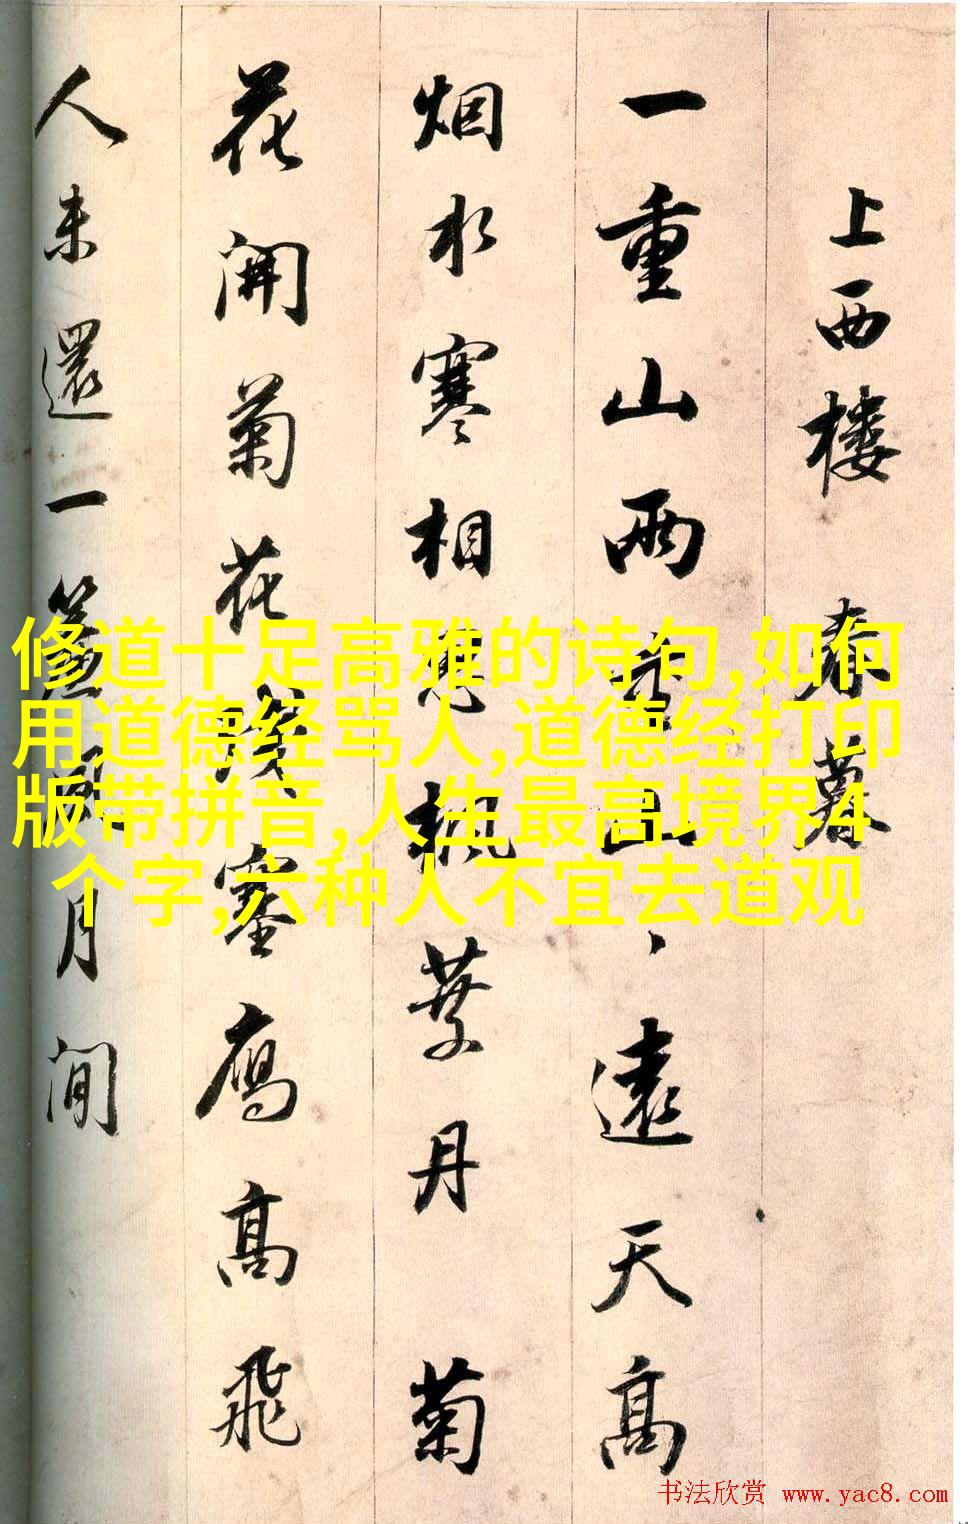 上西楼 春暮
一重山两重山、遠天高
烟水寒相思枫葉丹菊
花開菊花残塞雁高飛
人未還一簾風月閒
修道十足高雅的诗句,如何
用道德经骂人,道德经打印
版带拼音,人生最高境界4
个字,六种人不宜去道观
书法欣赏 www.yac8.com